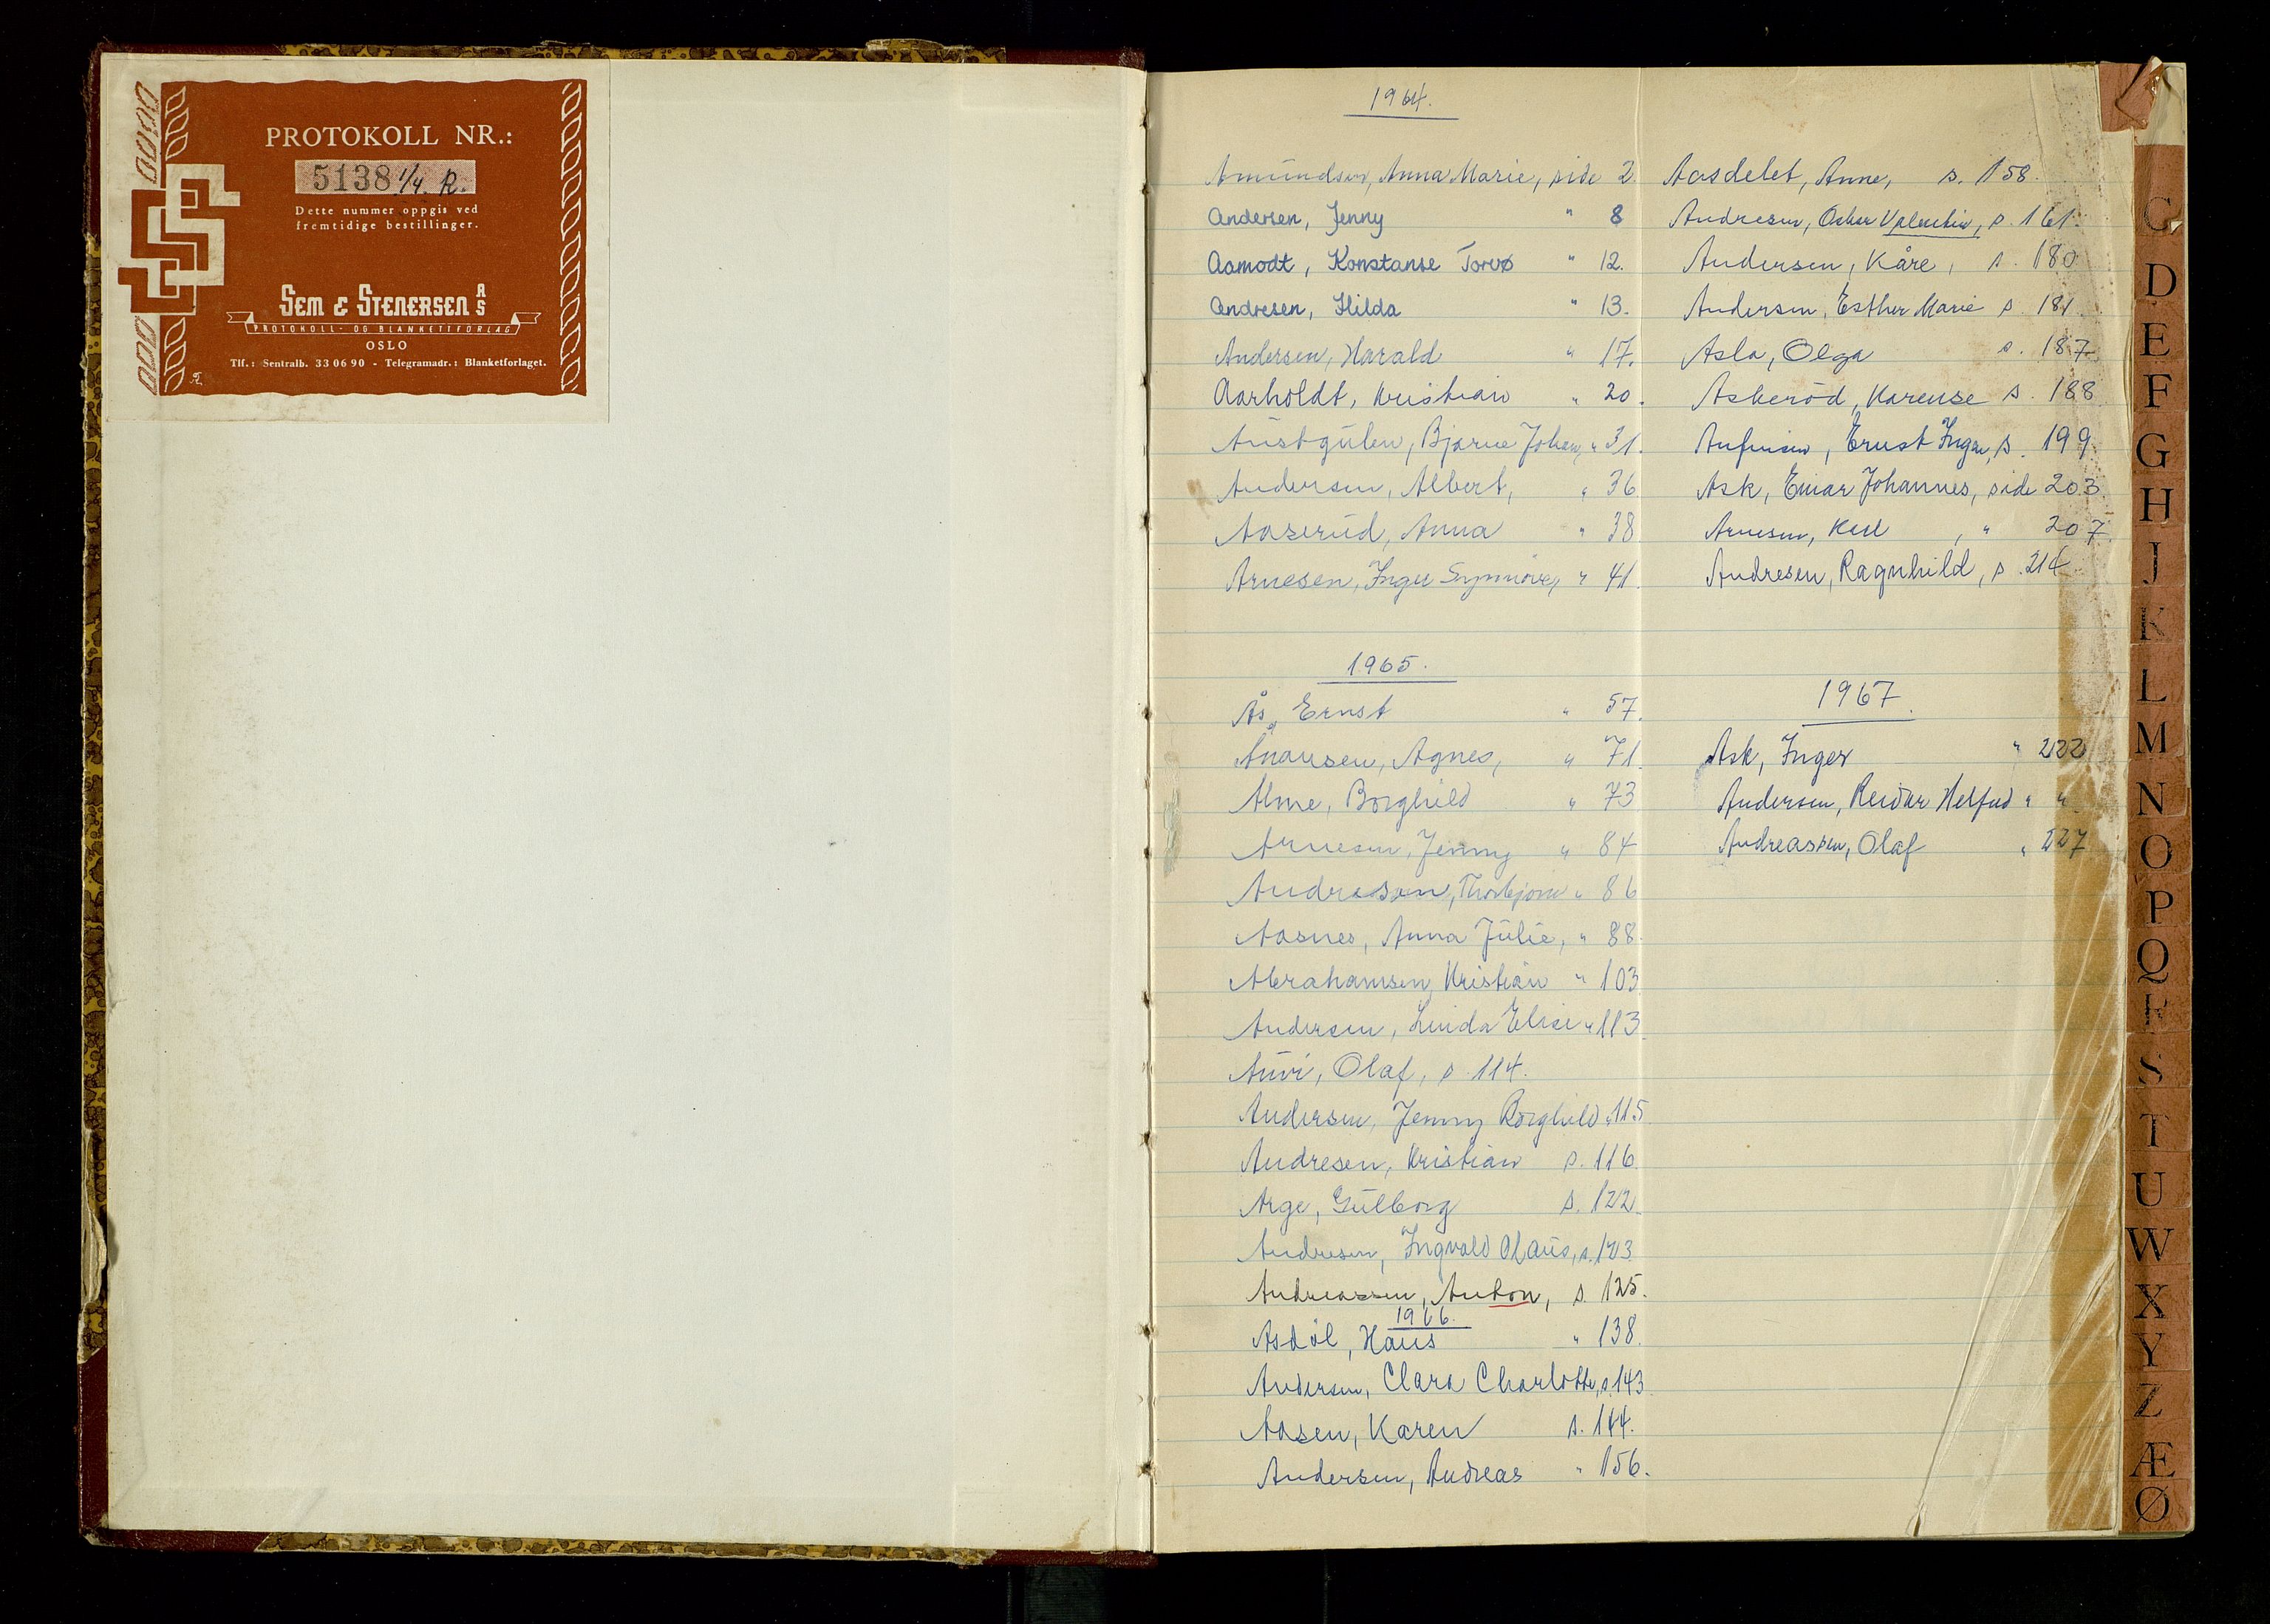 PROTOKOLL NR.:
5138 1/4. R.
Dette nummer oppgis ved
fremtidige bestillinger.
SEM & STENERSEN A/S
PROTOKOLL- OG BLANKETTFORLAG
OSLO
Tlf.: Sentralb. 33 06 90 - Telegramadr.: Blanketforlaget.
1964.
Amundsen, Anna Marie, side 2.
Andersen, Jenny " 8
Aamodt, Konstanse Torvø " 12.
Andresen, Hilda " 13.
Andersen, Harald " 17.
Aarholdt, Kristian " 20.
Austgulen, Bjarne Johan, " 31.
Andersen, Albert, " 36.
Aaserud, Anna " 38
Arnesen, Inger Synnöve, " 41.
1965.
Ås, Ernst " 57.
Agnes, " 71.
Alme, Borghild " 73
Arnesen, Jenny " 84
Andresen, Thorbjørn " 86
Aasnes, Anna Julie, " 88.
Abrahamsen, Kristian " 103
Andersen, Linda Elise " 113
Auvi, Olaf, s. 114.
Andersen, Jenny Borghild " 115
Andresen, Kristian s. 116.
Arge, Gulborg s. 122.
Andresen, Ingvald Olaus, s. 123
Andreassen, Anton, s. 125.
1966.
Asdöl, Hans " 138.
Andersen, Clara Charlotte, s. 143.
Aasen, Karen s. 144.
Andersen, Andreas " 156.
Aasdelet, Anne, s. 158.
Andresen, Oskar Valentin, s. 161.
Andersen, Kåre, s. 180
Andersen, Esther Marie s. 181.
Asla, Olga s. 187.
Askeröd, Karense s. 188.
Ernst Ingar, s. 199.
Ask, Einar Johannes, side 203.
Arnesen, Karl, " 207.
Andresen, Ragnhild, s. 214.
1967.
Ask, Inger " 222
Andersen, Reidar Helfred " "
Andreassen, Olaf " 227
C
D
E
F
G
H
J
K
L
M
N
O
P
Q
R
S
T
U
W
X
Y
Z
Æ
Ø